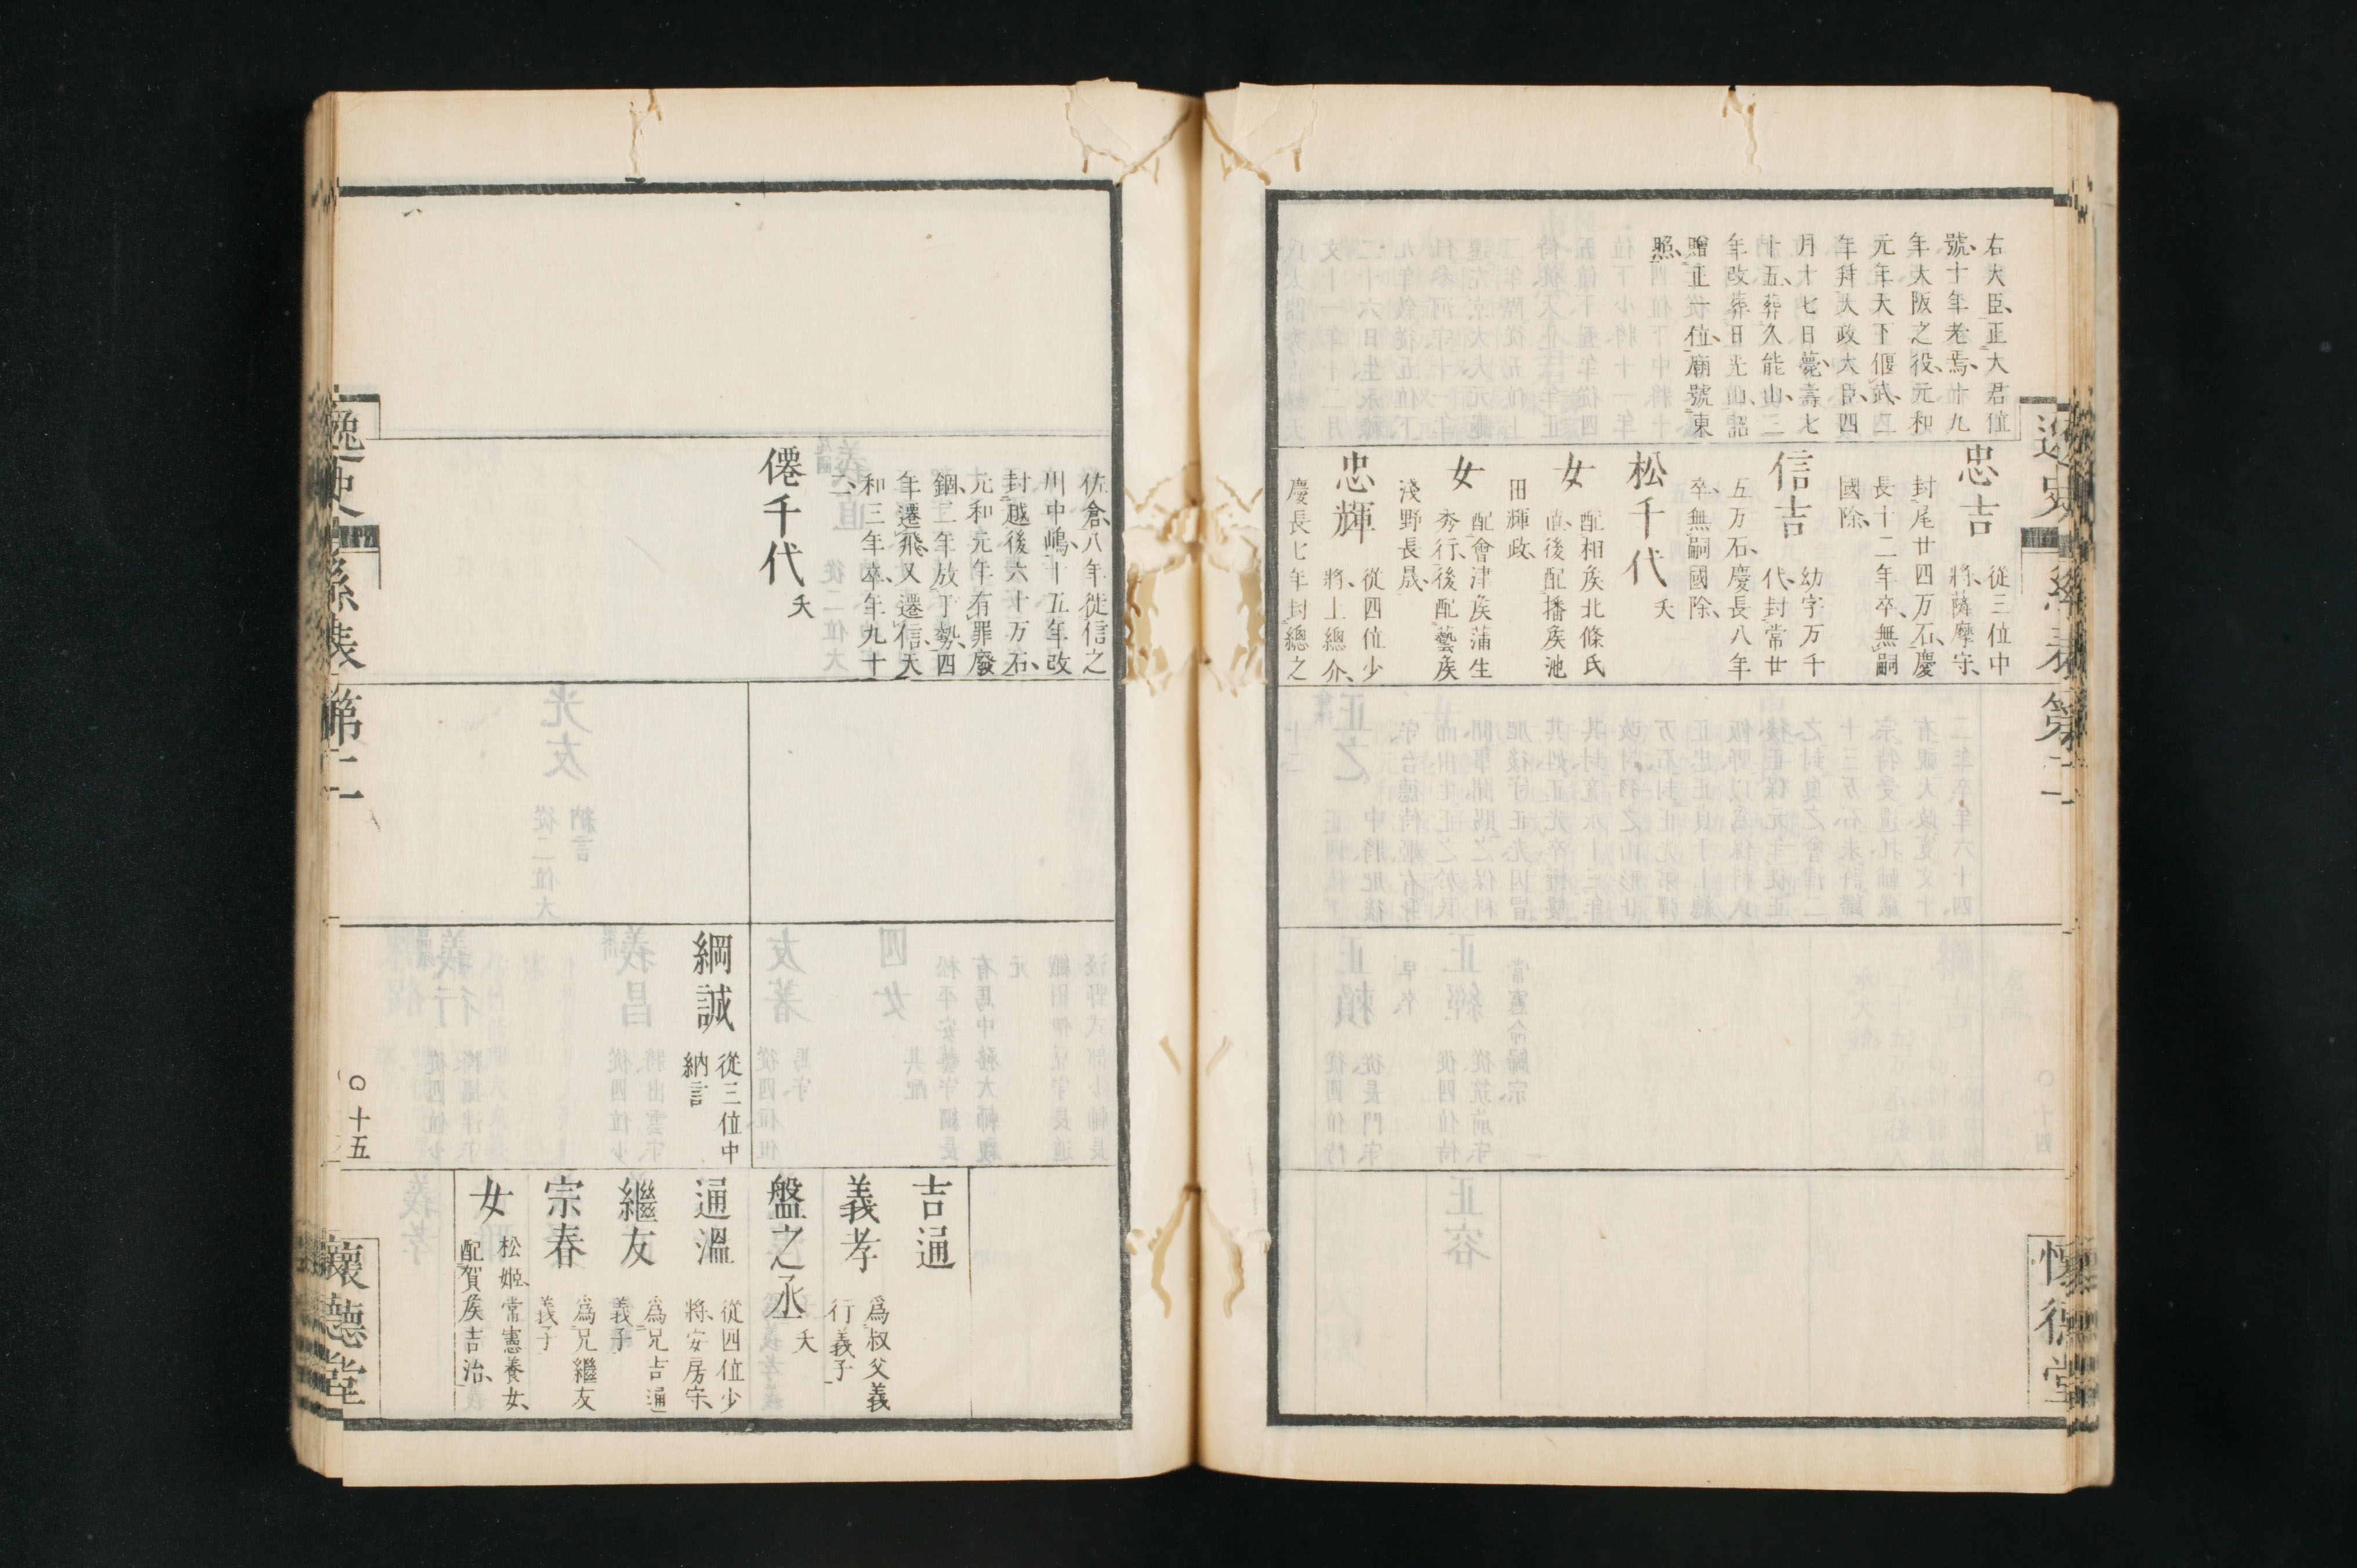 右大臣、正大君位
號、十年老焉、十九
年大阪之役、元和
元年天下偃武、四
年拜大政大臣、四
月十七日薨、壽七
十五、葬久能山、三
年改葬日光山、詔
贈正一位、廟號東
照、
忠吉
從三位中
將、薩摩守、
封尾廿四万石、慶
長十二年卒、無嗣
國除、
信吉
幼字万千
代、封常廿
五万石、慶長八年
卒、無嗣國除、
松千代
夭
女
配相矦北條氏
直、後配播矦池
田輝政、
女
配會津矦蒲生
秀行、後配藝矦
淺野長晟、
忠輝
從四位少
將、上總介、
慶長七年封總之
逸史
系表第二
懷德堂
佐倉、八年徙信之
川中嶋、十五年改
封越後六十万石、
元和元年有罪廢
錮、二年放于勢、四
年遷飛、又遷信、天
和三年卒、年九十
二、
僊千代
夭
綱誠
從三位中
納言
吉通
義孝
爲叔父義
行義子
盤之丞
夭
通溫
從四位少
將、安房守、
繼友
爲兄吉通
義子
宗春
爲兄繼友
義子
女
松姬、常憲養女、
配賀矦吉治、
逸史
系表第二
○十五
懷德堂